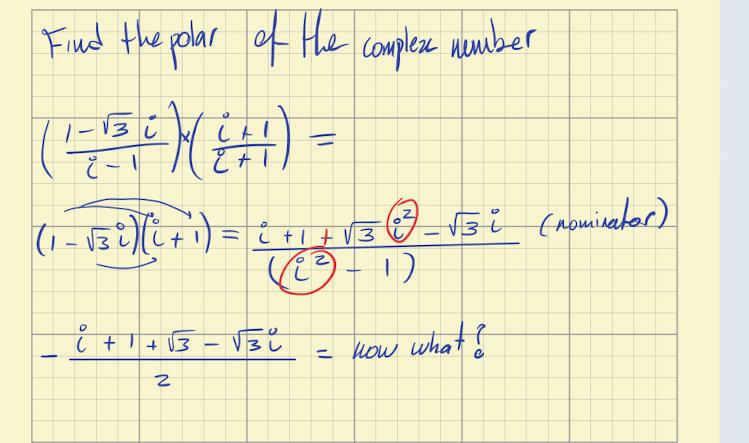 Find the polar of the complex number
((1-√3 i)/(i-1))×((i+1)/(i+1)) =
(1-√3 i)(i+1) = (i+1+√3 i²-√3 i)/(i²-1) (nominator)
-(i+1+√3-√3 i)/2 = now what?